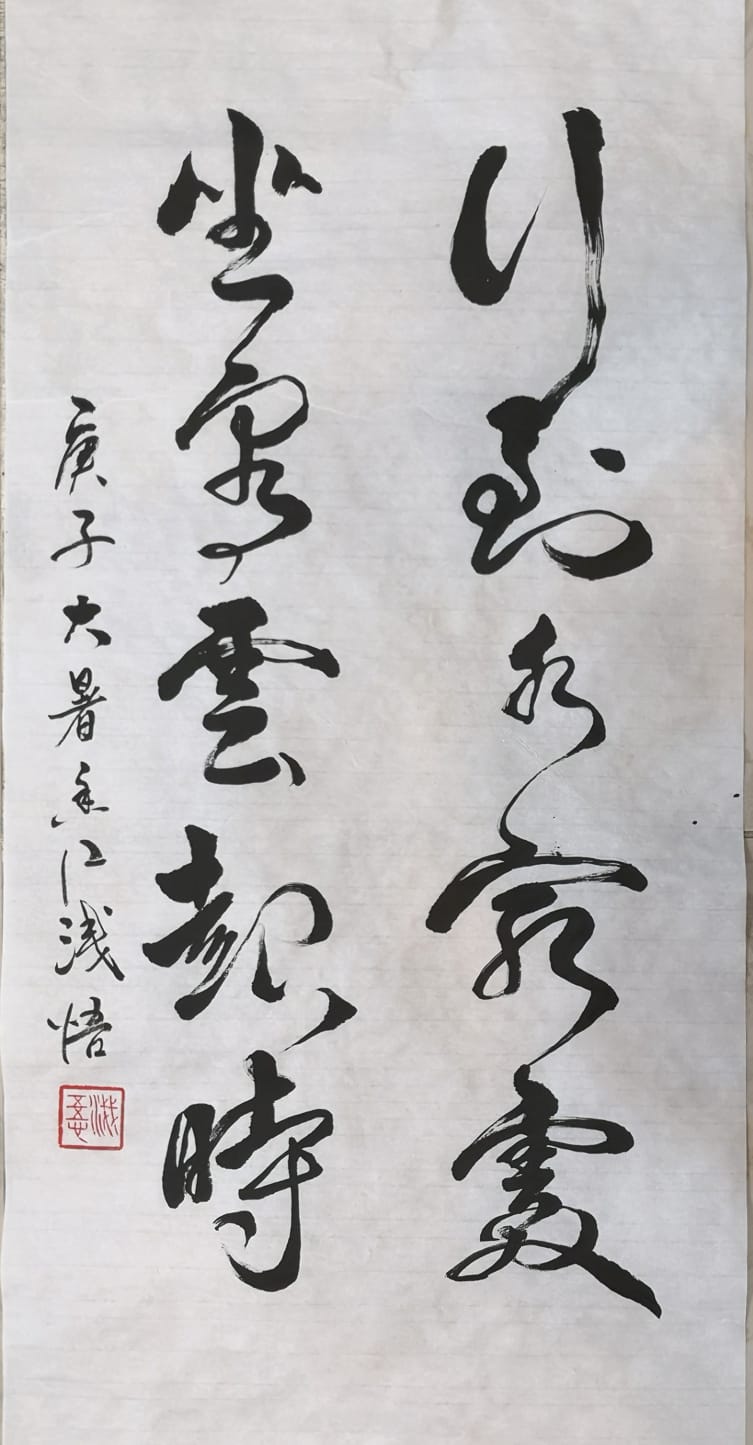 行到水窮處
坐看雲起時
庚子大暑 江浅悟